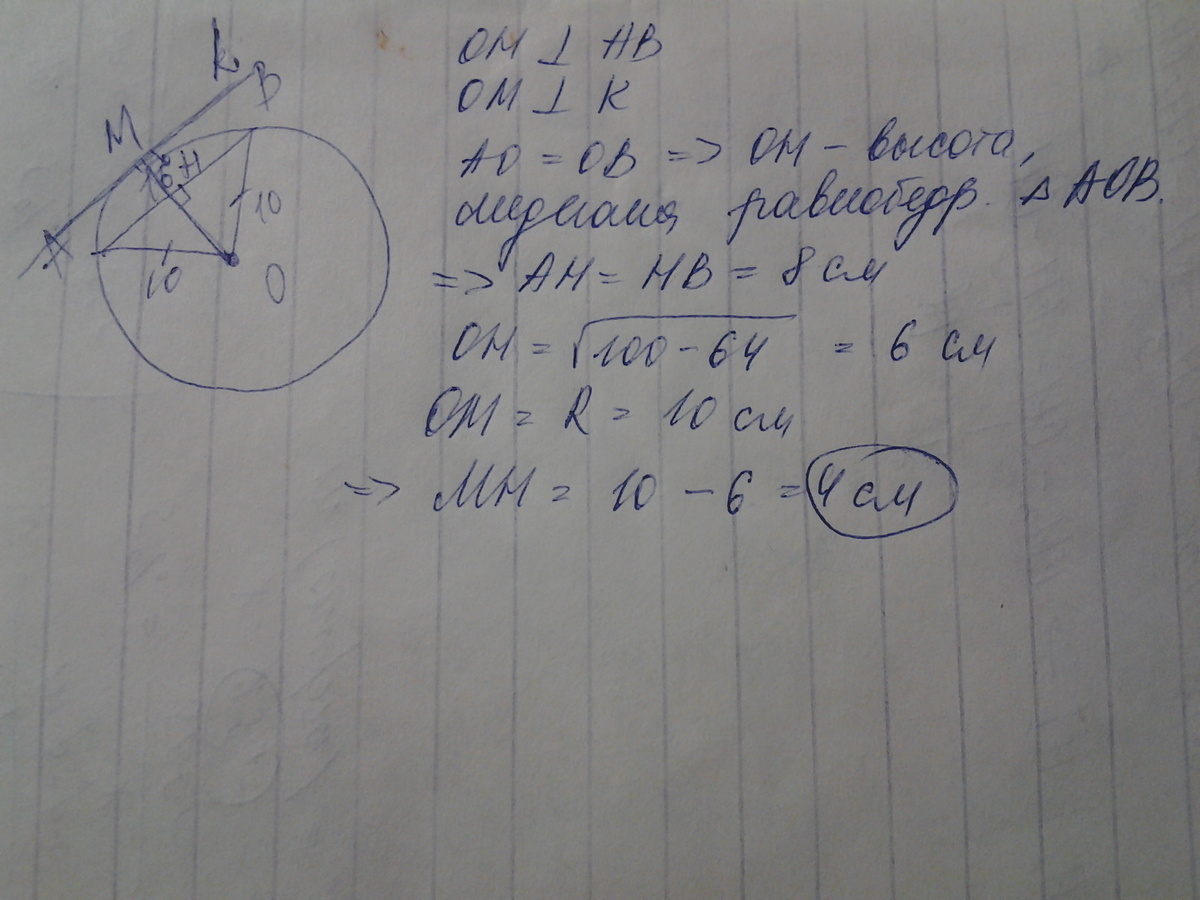 K
B
M
16
H
10
A
10
O
OH ⊥ AB
OM ⊥ K
AO = OB => OH – высота,
медиана равнобедр. △ AOB.
=> AH = HB = 8 см
OH = √100-64 = 6 см
OM = R = 10 см
=> MH = 10 - 6 = 4 см